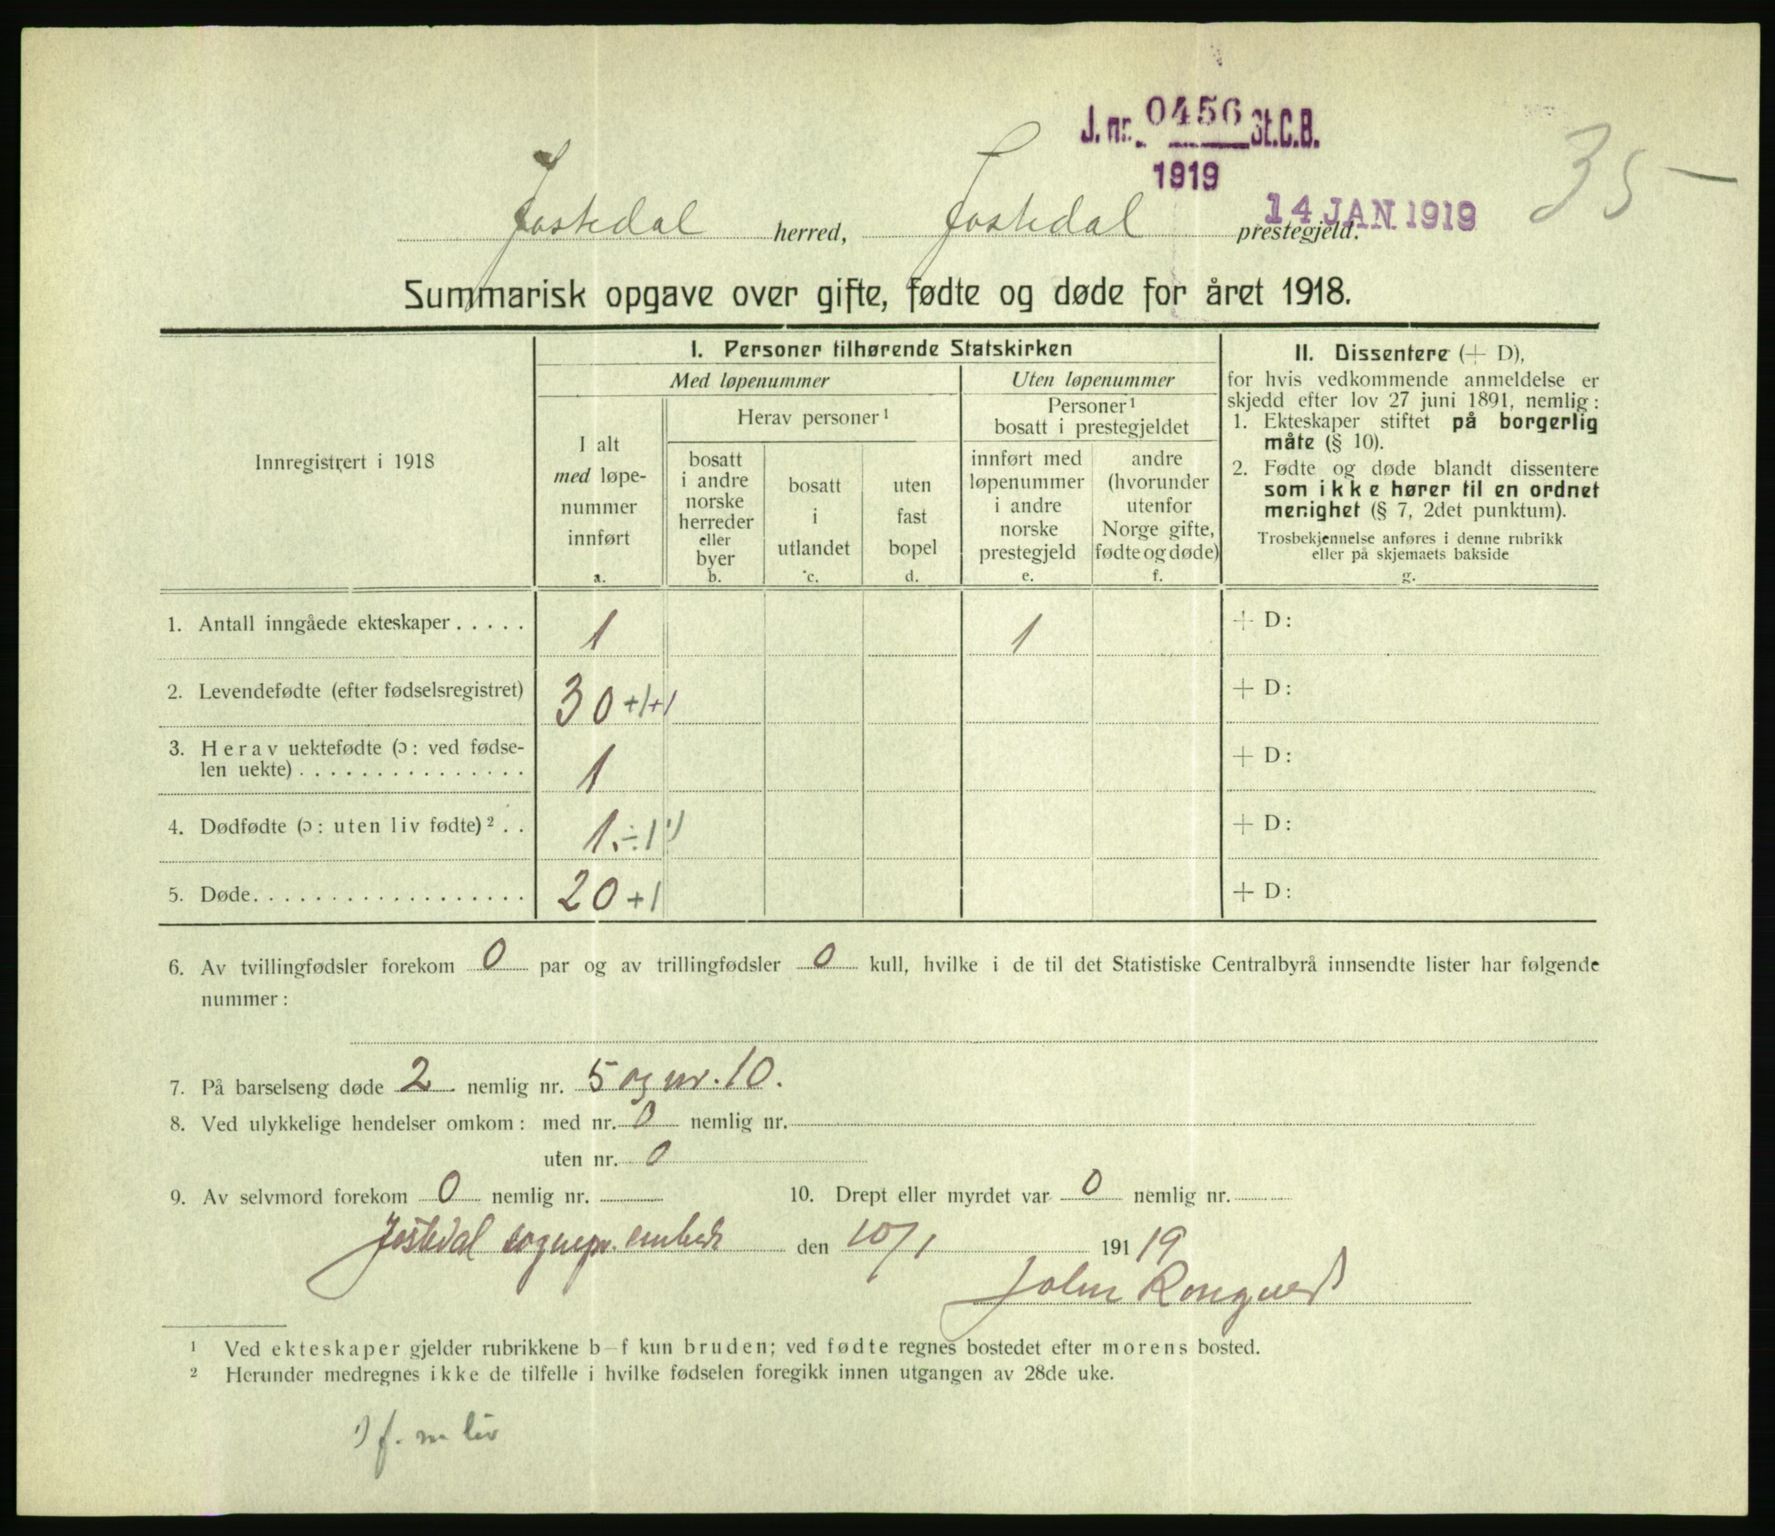 J. nr. 0456 St.C.B.
1919
14 JAN 1919
35 —
Jostedal herred, Jostedal prestegjeld.
Summarisk opgave over gifte, fødte og døde for året 1918.
Innregistrert i 1918
I. Personer tilhørende Statskirken
Med løpenummer
Uten løpenummer
I alt
med løpe-
nummer
innført
a.
Herav personer¹
bosatt
i andre
norske
herreder
eller
byer
b.
bosatt
i
utlandet
c.
uten
fast
bopel
d.
Personer¹
bosatt i prestegjeldet
innført med
løpenummer
i andre
norske
prestegjeld
e.
andre
(hvorunder
utenfor
Norge gifte,
fødte og døde)
f.
II. Dissentere (+ D),
for hvis vedkommende anmeldelse er
skjedd efter lov 27 juni 1891, nemlig:
1. Ekteskaper stiftet på borgerlig
måte (§ 10).
2. Fødte og døde blandt dissentere
som ikke hører til en ordnet
menighet (§ 7, 2det punktum).
Trosbekjennelse anføres i denne rubrikk
eller på skjemaets bakside
g.
1. Antall inngåede ekteskaper..... 1 1 + D:
2. Levendefødte (efter fødselsregistret) 30 +1+1 + D:
3. Herav uektefødte (ɔ: ved fødse-
len uekte)............... 1 + D:
4. Dødfødte (ɔ: uten liv fødte)².. 1 ÷1¹) + D:
5. Døde.................. 20 +1 + D:
6. Av tvillingfødsler forekom 0 par og av trillingfødsler 0 kull, hvilke i de til det Statistiske Centralbyrå innsendte lister har følgende
nummer:
7. På barselseng døde 2 nemlig nr. 5 og nr. 10.
8. Ved ulykkelige hendelser omkom: med nr. 0 nemlig nr.
uten nr. 0
9. Av selvmord forekom 0 nemlig nr. 10. Drept eller myrdet var 0 nemlig nr.
Jostedal sognepr. embede den 10/1 1919
John
¹ Ved ekteskaper gjelder rubrikkene b–f kun bruden; ved fødte regnes bostedet efter morens bosted.
² Herunder medregnes ikke de tilfelle i hvilke fødselen foregikk innen utgangen av 28de uke.
¹) f. m liv